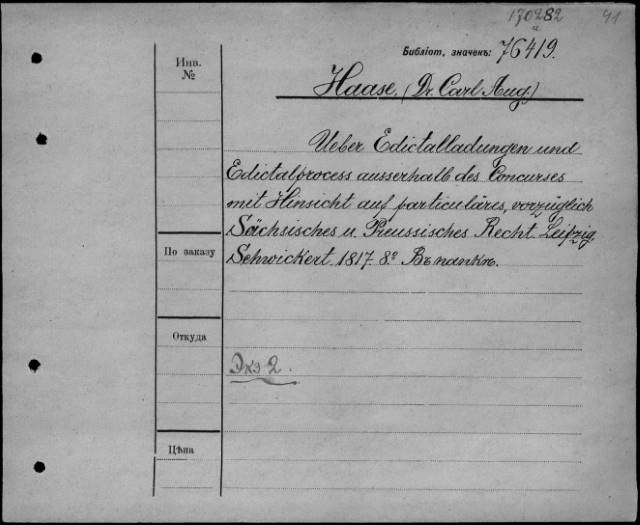 170282 41
и
Библіот. значекъ: 76419.
Инв.
№
Haase, (Dr. Carl Aug.)
Ueber Edictalladungen und
Edictalprocess ausserhalb des Concurses
mit Hinsicht auf particuläres, vorzüglich
Sächsisches u. Preussisches Recht. Leipzig
Schwickert. 1817. 8º. Въ папкѣ.
По заказу
Откуда
Экз 2.
Цѣна